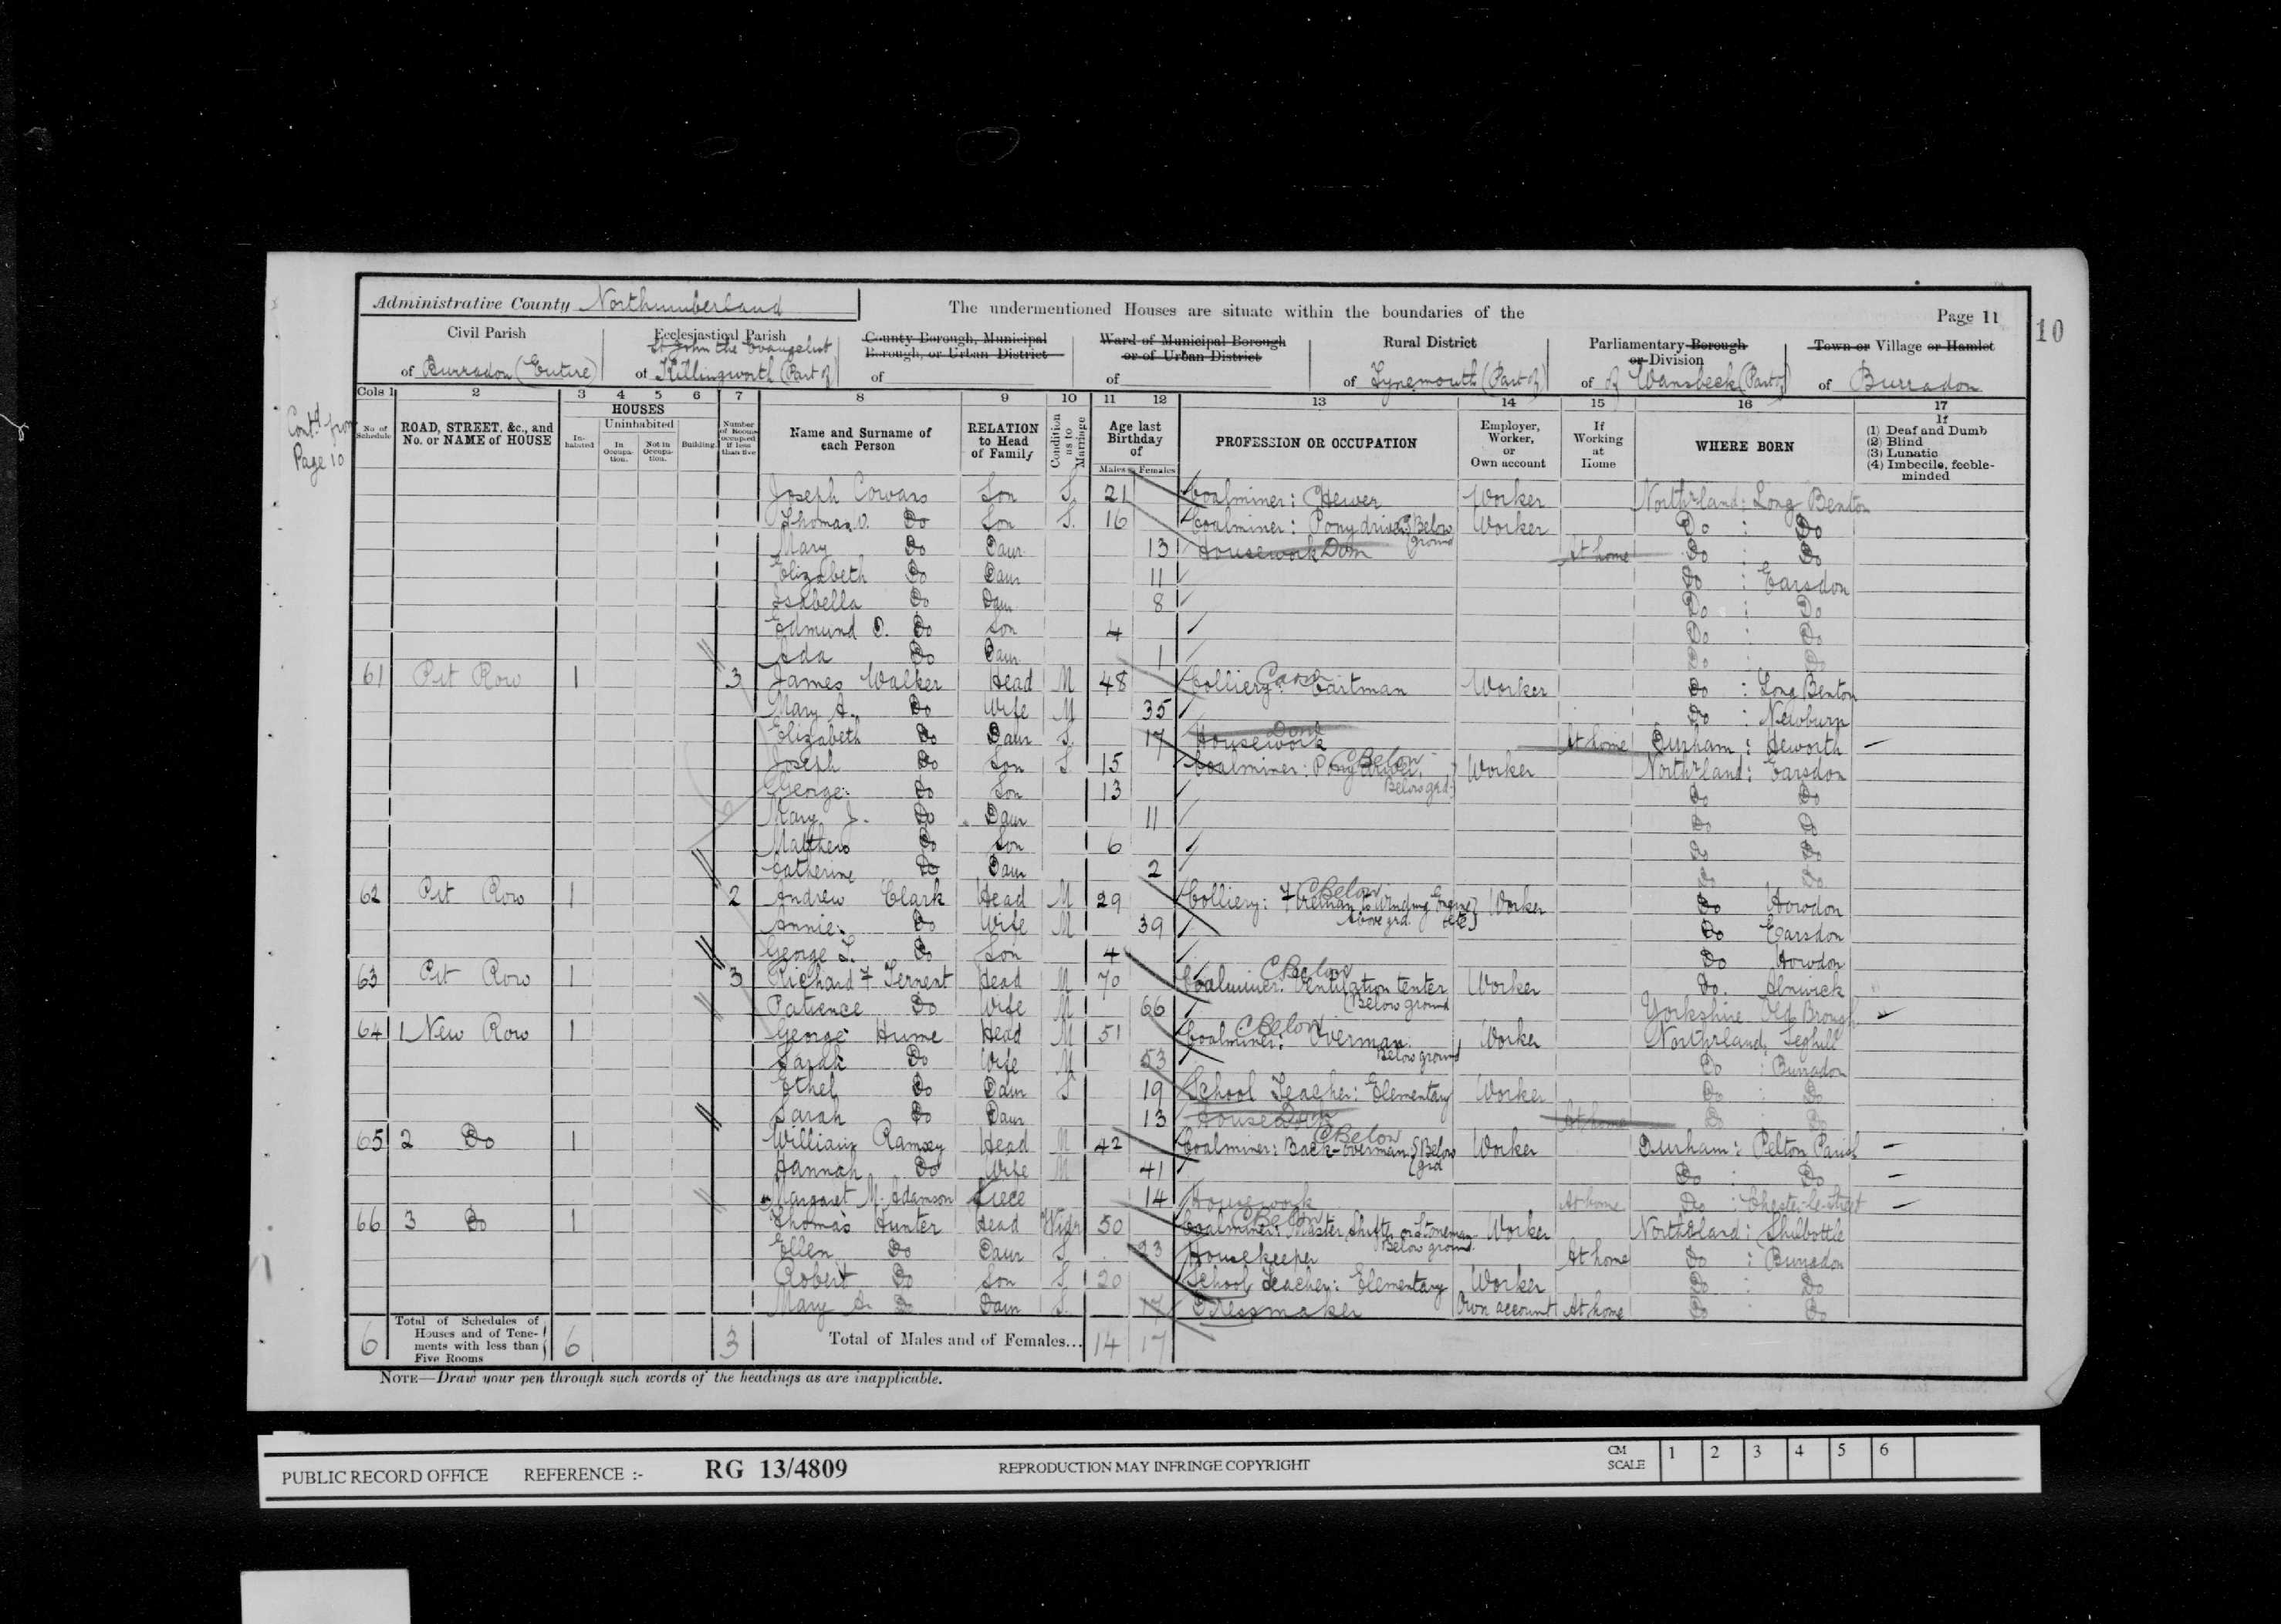 Administrative County Northumberland
The undermentioned Houses are situate within the boundaries of the
Page 11
10
Civil Parish
of Burradon (Entire)
Ecclesiastical Parish
St John the Evangelist
of Killingworth (Part of)
County Borough, Municipal
Borough, or Urban District
of
Ward of Municipal Borough
or of Urban District
of
Rural District
of Tynemouth (Part of)
Parliamentary Borough
or Division
of of Wansbeck (Part of)
Town or Village or Hamlet
of Burradon
Contd from
Page 10
Cols 1 2 3 4 5 6 7 8 9 10 11 12 13 14 15 16 17
No. of Schedule
ROAD, STREET, &c., and No. or NAME of HOUSE
HOUSES
Inhabited
Uninhabited
In Occupation.
Not in Occupation.
Building
Number of Rooms occupied if less than five
Name and Surname of each Person
RELATION to Head of Family
Condition as to Marriage
Age last Birthday of
Males Females
PROFESSION OR OCCUPATION
Employer, Worker, or Own account
If Working at Home
WHERE BORN
If
(1) Deaf and Dumb
(2) Blind
(3) Lunatic
(4) Imbecile, feeble-minded
Joseph Son S. 21 Coalminer: Hewer Worker North'land: Long Benton
Thomas O. Do Son S. 16 Coalminer: Pony driver (Below ground Worker Do : Do
Mary Do Daur 13 Housework Dom At home Do : Do
Elizabeth Do Daur 11 Do : Earsdon
Isabella Do Daur 8 Do : Do
Edmund O. Do Son 4 Do : Do
Ada Do Daur 1 Do : Do
61 Pit Row 1 3 James Walker Head M 48 Colliery: Cartman Worker Do : Long Benton
Mary A. Do Wife M 35 Do : Newburn
Elizabeth Do Daur S. 17 Housework Dom At home Durham : Heworth
Joseph Do Son S 15 Coalminer: Pony driver, Below grd. C Below Worker North'land: Earsdon
George Do Son 13 Do Do
Mary J. Do Daur 11 Do Do
Matthew Do Son 6 Do Do
Catherine Do Daur 2 Do Do
62 Pit Row 1 2 Andrew Clark Head M 29 Colliery: Fireman to Winding Engine etc Above grd. C Below Worker Do Howdon
Annie Do Wife M 39 Do Earsdon
George L. Do Son 4 Do Howdon
63 Pit Row 1 3 Richard F Terrent Head M 70 Coalminer: Ventilation tenter (Below ground C Below Worker Do. Alnwick
Patience Do Wife M 66 Yorkshire
64 1 New Row 1 George Hume Head M 51 Coalminer: Overman. Below ground C Below Worker North'land, Seghill
Sarah Do Wife M 53 Do : Burradon
Ethel Do Daur S 19 School Teacher: Elementary Worker Do : Do
Sarah Do Daur 13 House Dom At home Do Do
65 2 Do 1 William Ramsey Head M 42 Coalminer: Back-Overman (Below grd C Below Worker Durham: Pelton Parish
Hannah Do Wife M 41 Do : Do
Margaret M. Adamson Niece 14 Housework At home Do : Chester-le-Street
66 3 Do 1 Thomas Hunter Head Widr 50 Coalminer: Master Shifter or Stoneman Below ground. C Below Worker North'land: Shilbottle
Ellen Do Daur S 23 Housekeeper At home Do : Burradon
Robert Do Son S 20 School Teacher: Elementary Worker Do : Do
Mary Do Daur S. 17 Dressmaker Own account At home Do : Do
6 Total of Schedules of Houses and of Tenements with less than Five Rooms 6 3 Total of Males and of Females... 14 17
NOTE—Draw your pen through such words of the headings as are inapplicable.
PUBLIC RECORD OFFICE REFERENCE :- RG 13/4809 REPRODUCTION MAY INFRINGE COPYRIGHT CM SCALE 1 2 3 4 5 6